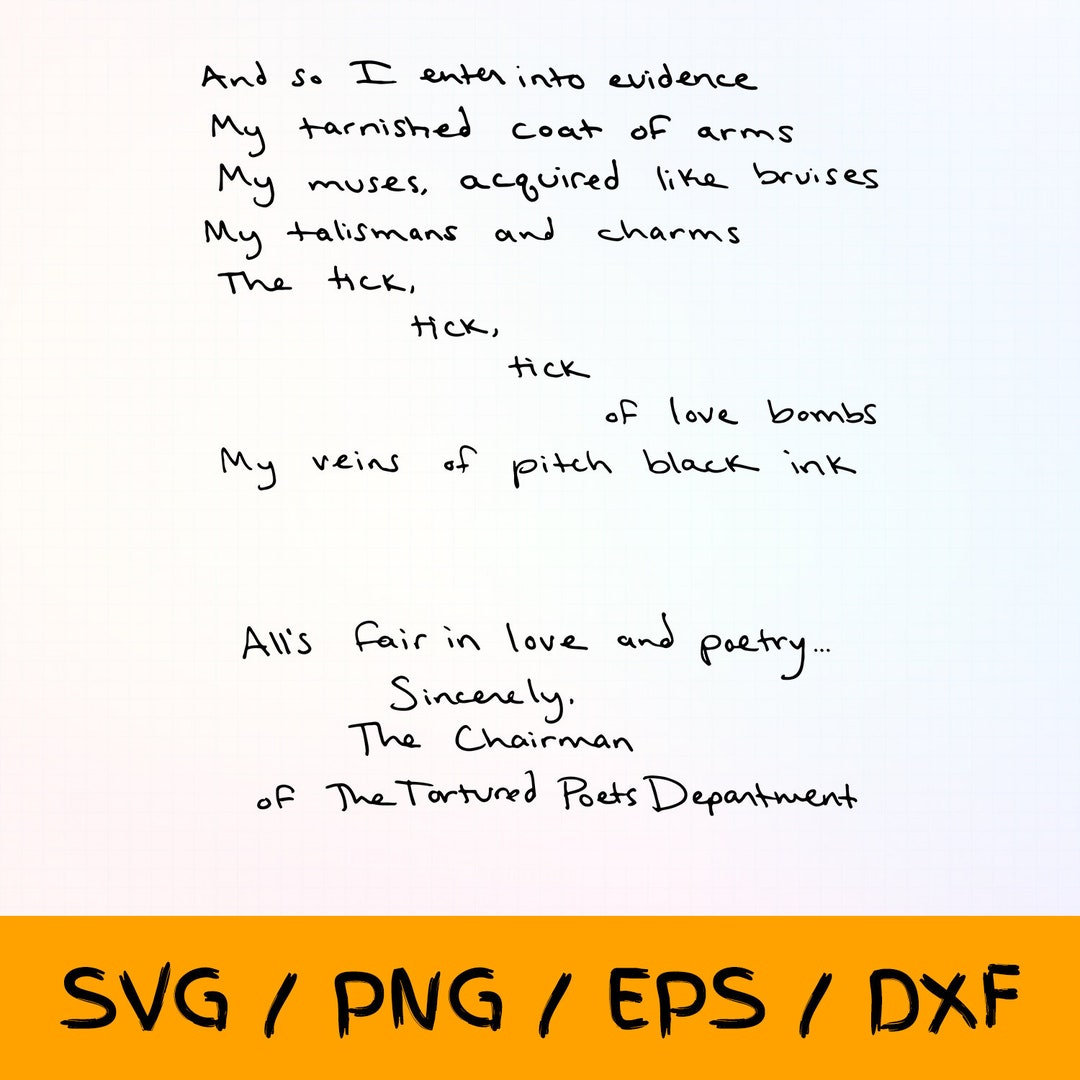 And so I enter into evidence
My tarnished coat of arms
My muses, acquired like bruises
My talismans and charms
The tick,
tick,
tick
of love bombs
My veins of pitch black ink
All's fair in love and poetry...
Sincerely,
The Chairman
of The Tortured Poets Department
SVG / PNG / EPS / DXF